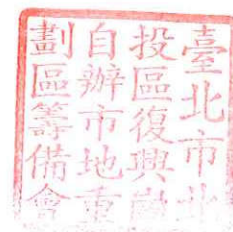 臺北市北
投區復興崗
自辦市地重
劃區籌備會